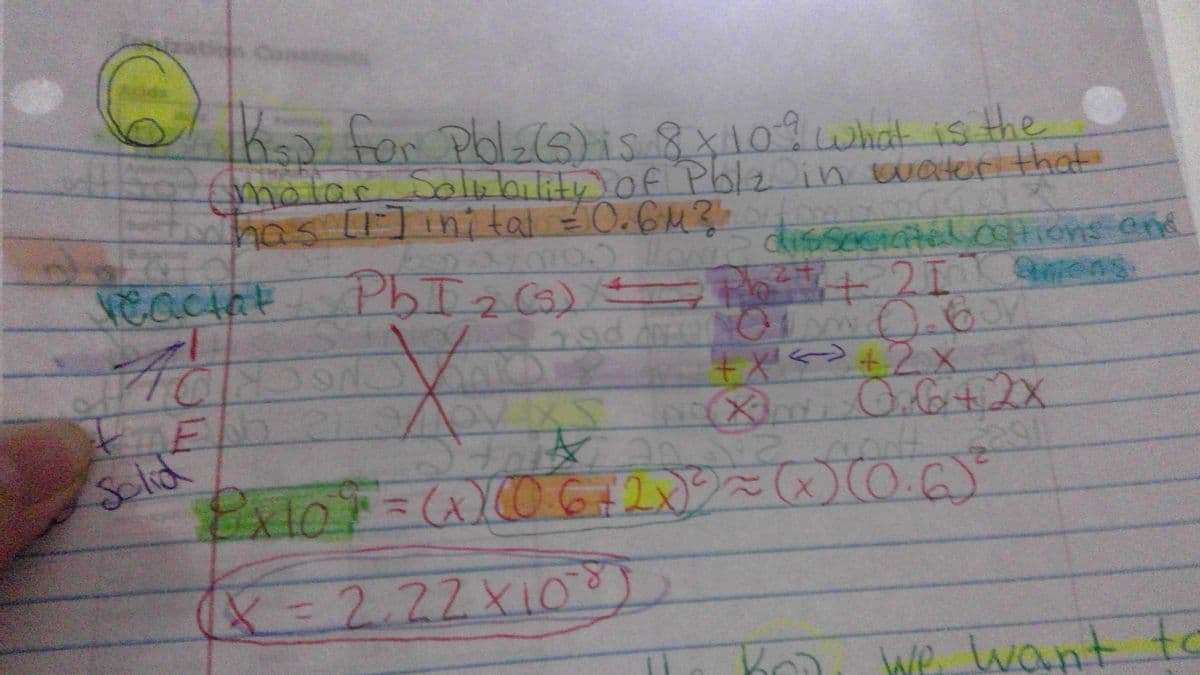 6 Ksp for PbI2(s) is 8x10-9. What is the
molar Solubility of PbI2 in water that
has [I-] inital = 0.6M?
dissociated cations and
anions
reactat PbI2(s) ⇌ Pb2+ + 2I-
I 0 0.6
C +x ↔ +2x
E x 0.6+2x
solid
8x10-9 = (x)(0.6+2x)2 ≈ (x)(0.6)2
x = 2.22 x10-8
Ksp, we want to